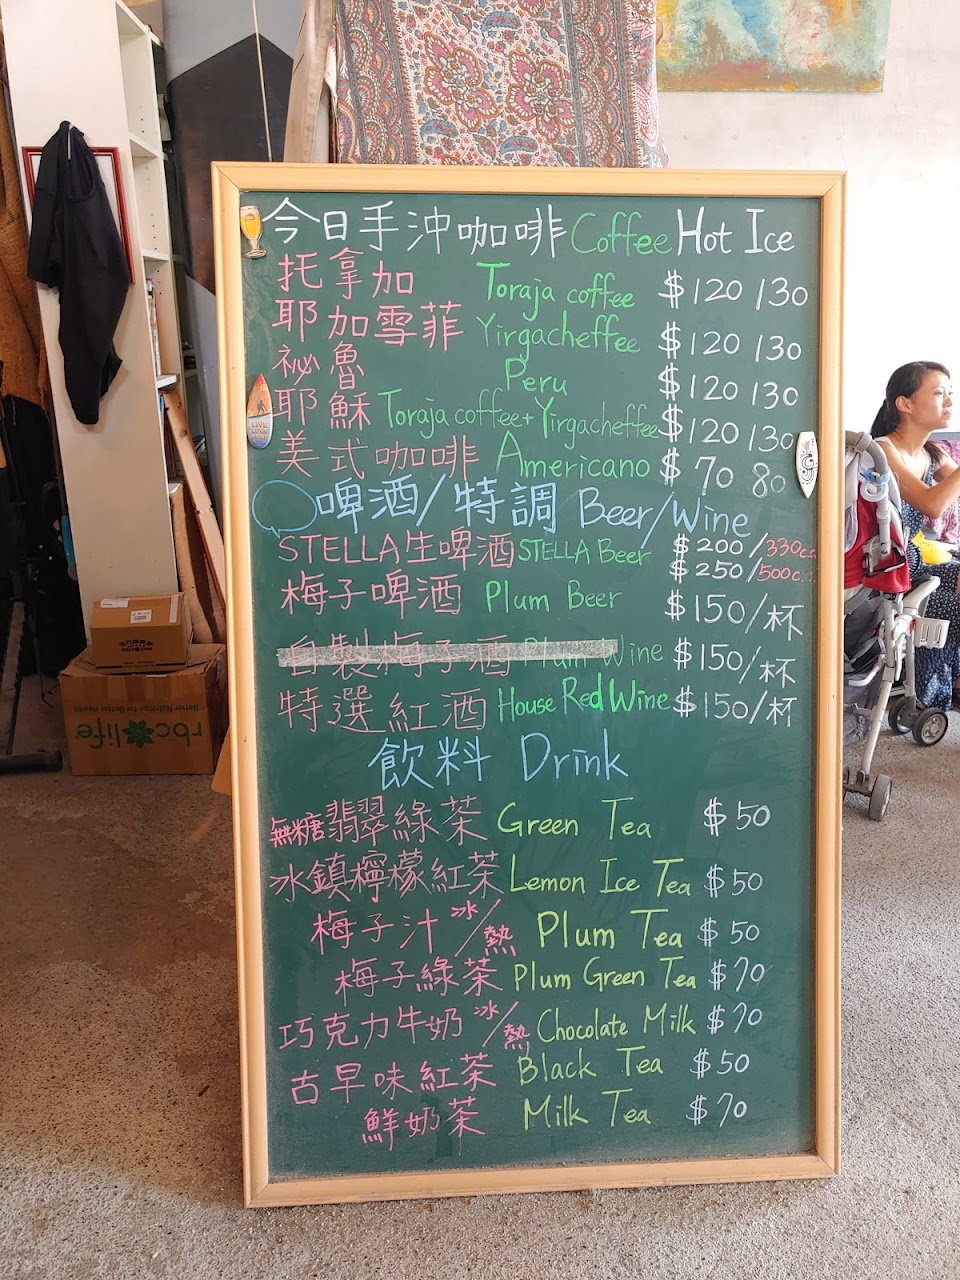 今日手沖咖啡 Coffee Hot Ice
托拿加 Toraja coffee $120 130
耶加雪菲 Yirgacheffee $120 130
祕魯 Peru $120 130
耶穌 Toraja coffee+Yirgacheffee $120 130
美式咖啡 Americano $70 80
啤酒/特調 Beer/Wine
STELLA生啤酒 STELLA Beer $200/330c.c
$250/500c.c
梅子啤酒 Plum Beer $150/杯
自製梅子酒 Plum Wine $150/杯
特選紅酒 House Red Wine $150/杯
飲料 Drink
無糖翡翠綠茶 Green Tea $50
冰鎮檸檬紅茶 Lemon Ice Tea $50
梅子汁 冰/熱 Plum Tea $50
梅子綠茶 Plum Green Tea $70
巧克力牛奶 冰/熱 Chocolate Milk $70
古早味紅茶 Black Tea $50
鮮奶茶 Milk Tea $70
rbclife
Better Nutrition for Better Health